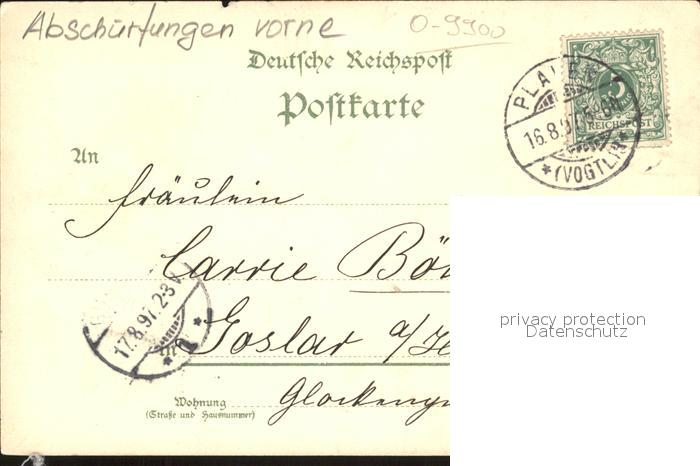 Abschürfungen vorne
O-9900
Deutsche Reichspost
Postkarte
PLAUEN
16.8.97
*(VOGTL.)*
5
REICHSPOST
An
Fräulein
Carrie
17.8.97.2-3 V
in Goslar a/H
Wohnung
(Straße und Hausnummer)
privacy protection
Datenschutz